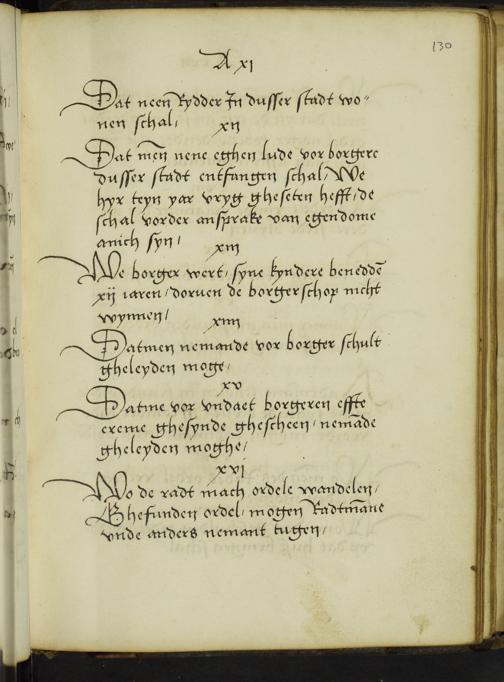 130
A xi
Dat neen Rydder In dusser stadt wo-
nen schal,
xii
Dat men nene eghen lude vor borgere
dusser stadt entfangen schal, We
hyr teyn yar vryg gheseten hefft, de
schal vorder ansprake van egendome
anich syn,
xiii
We borger wert, syne kyndere benedde
xij iaren, dorven de borgerschop nicht
wynnen,
xiiii
Datmen nemande vor borger schult
gheleyden moge,
xv
Datme vor undaet borgeren effte
ereme ghesynde ghescheen, nemāde
gheleyden moghe,
xvi
Wo de radt mach ordele wandelen,
Ghefunden ordel, mogen Radtmāne
unde anders nemant tugen,